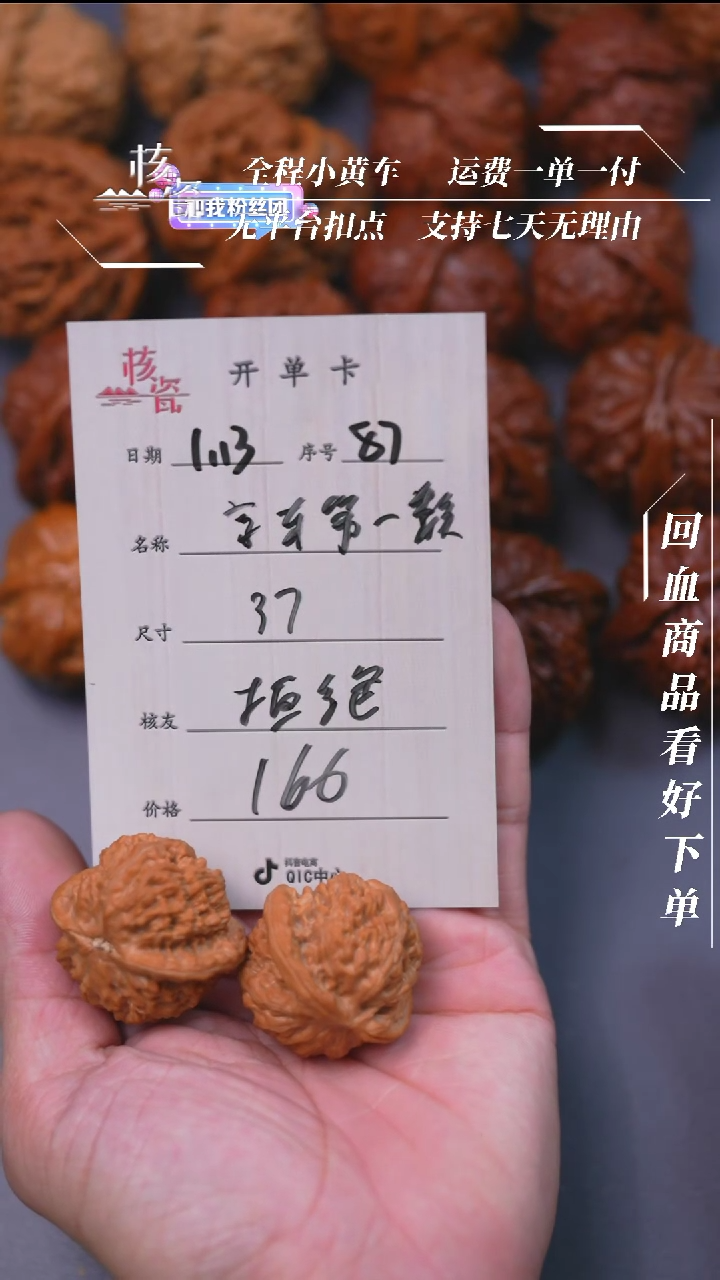 核瓷
全程小黄车 运费一单一付
加我粉丝团
无平台扣点 支持七天无理由
核瓷
开单卡
日期 1.13 序号 87
名称 京东第一款
尺寸 37
核友 拒绝
价格 166
抖音电商
QIC中心
回血商品看好下单